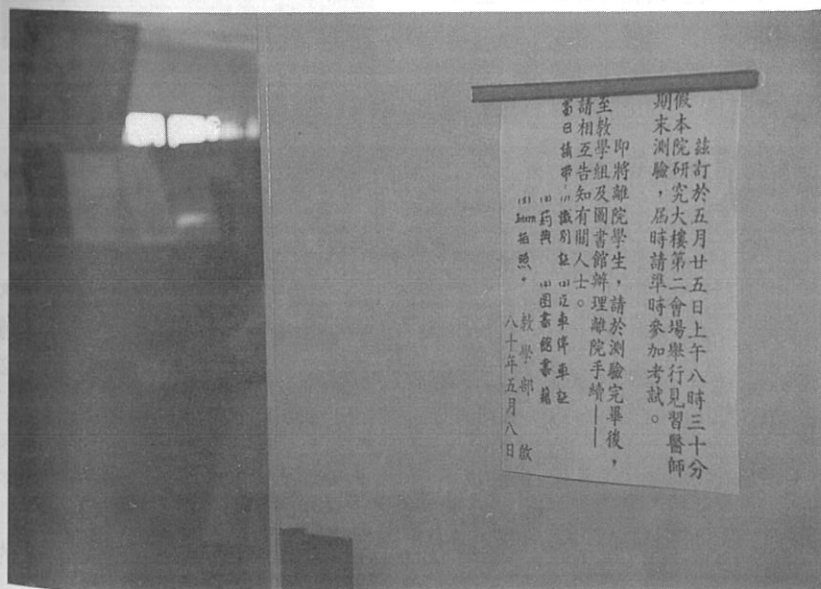 茲訂於五月廿五日上午八時三十分
假本院研究大樓第二會場舉行見習醫師
期末測驗，屆時請準時參加考試。
即將離院學生，請於測驗完畢後，
至教學組及圖書館辦理離院手續——
請相互告知有關人士。
當日請帶：(1)識別証 (2)汽車停車証
(3)药典 (4)图書館書籍
(5)Intern拍照。
教學部 啟
八十年五月八日